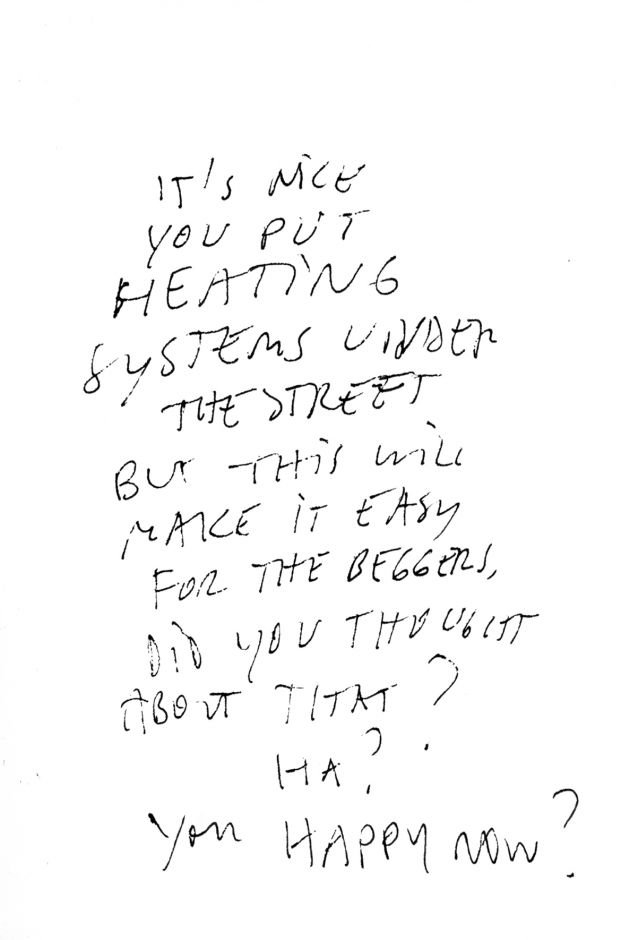 IT'S NICE
YOU PUT
HEATING
SYSTEMS UNDER
THE STREET
BUT THIS WILL
MAKE IT EASY
FOR THE BEGGERS,
DID YOU THOUGHT
ABOUT THAT?
HA?
YOU HAPPY NOW?